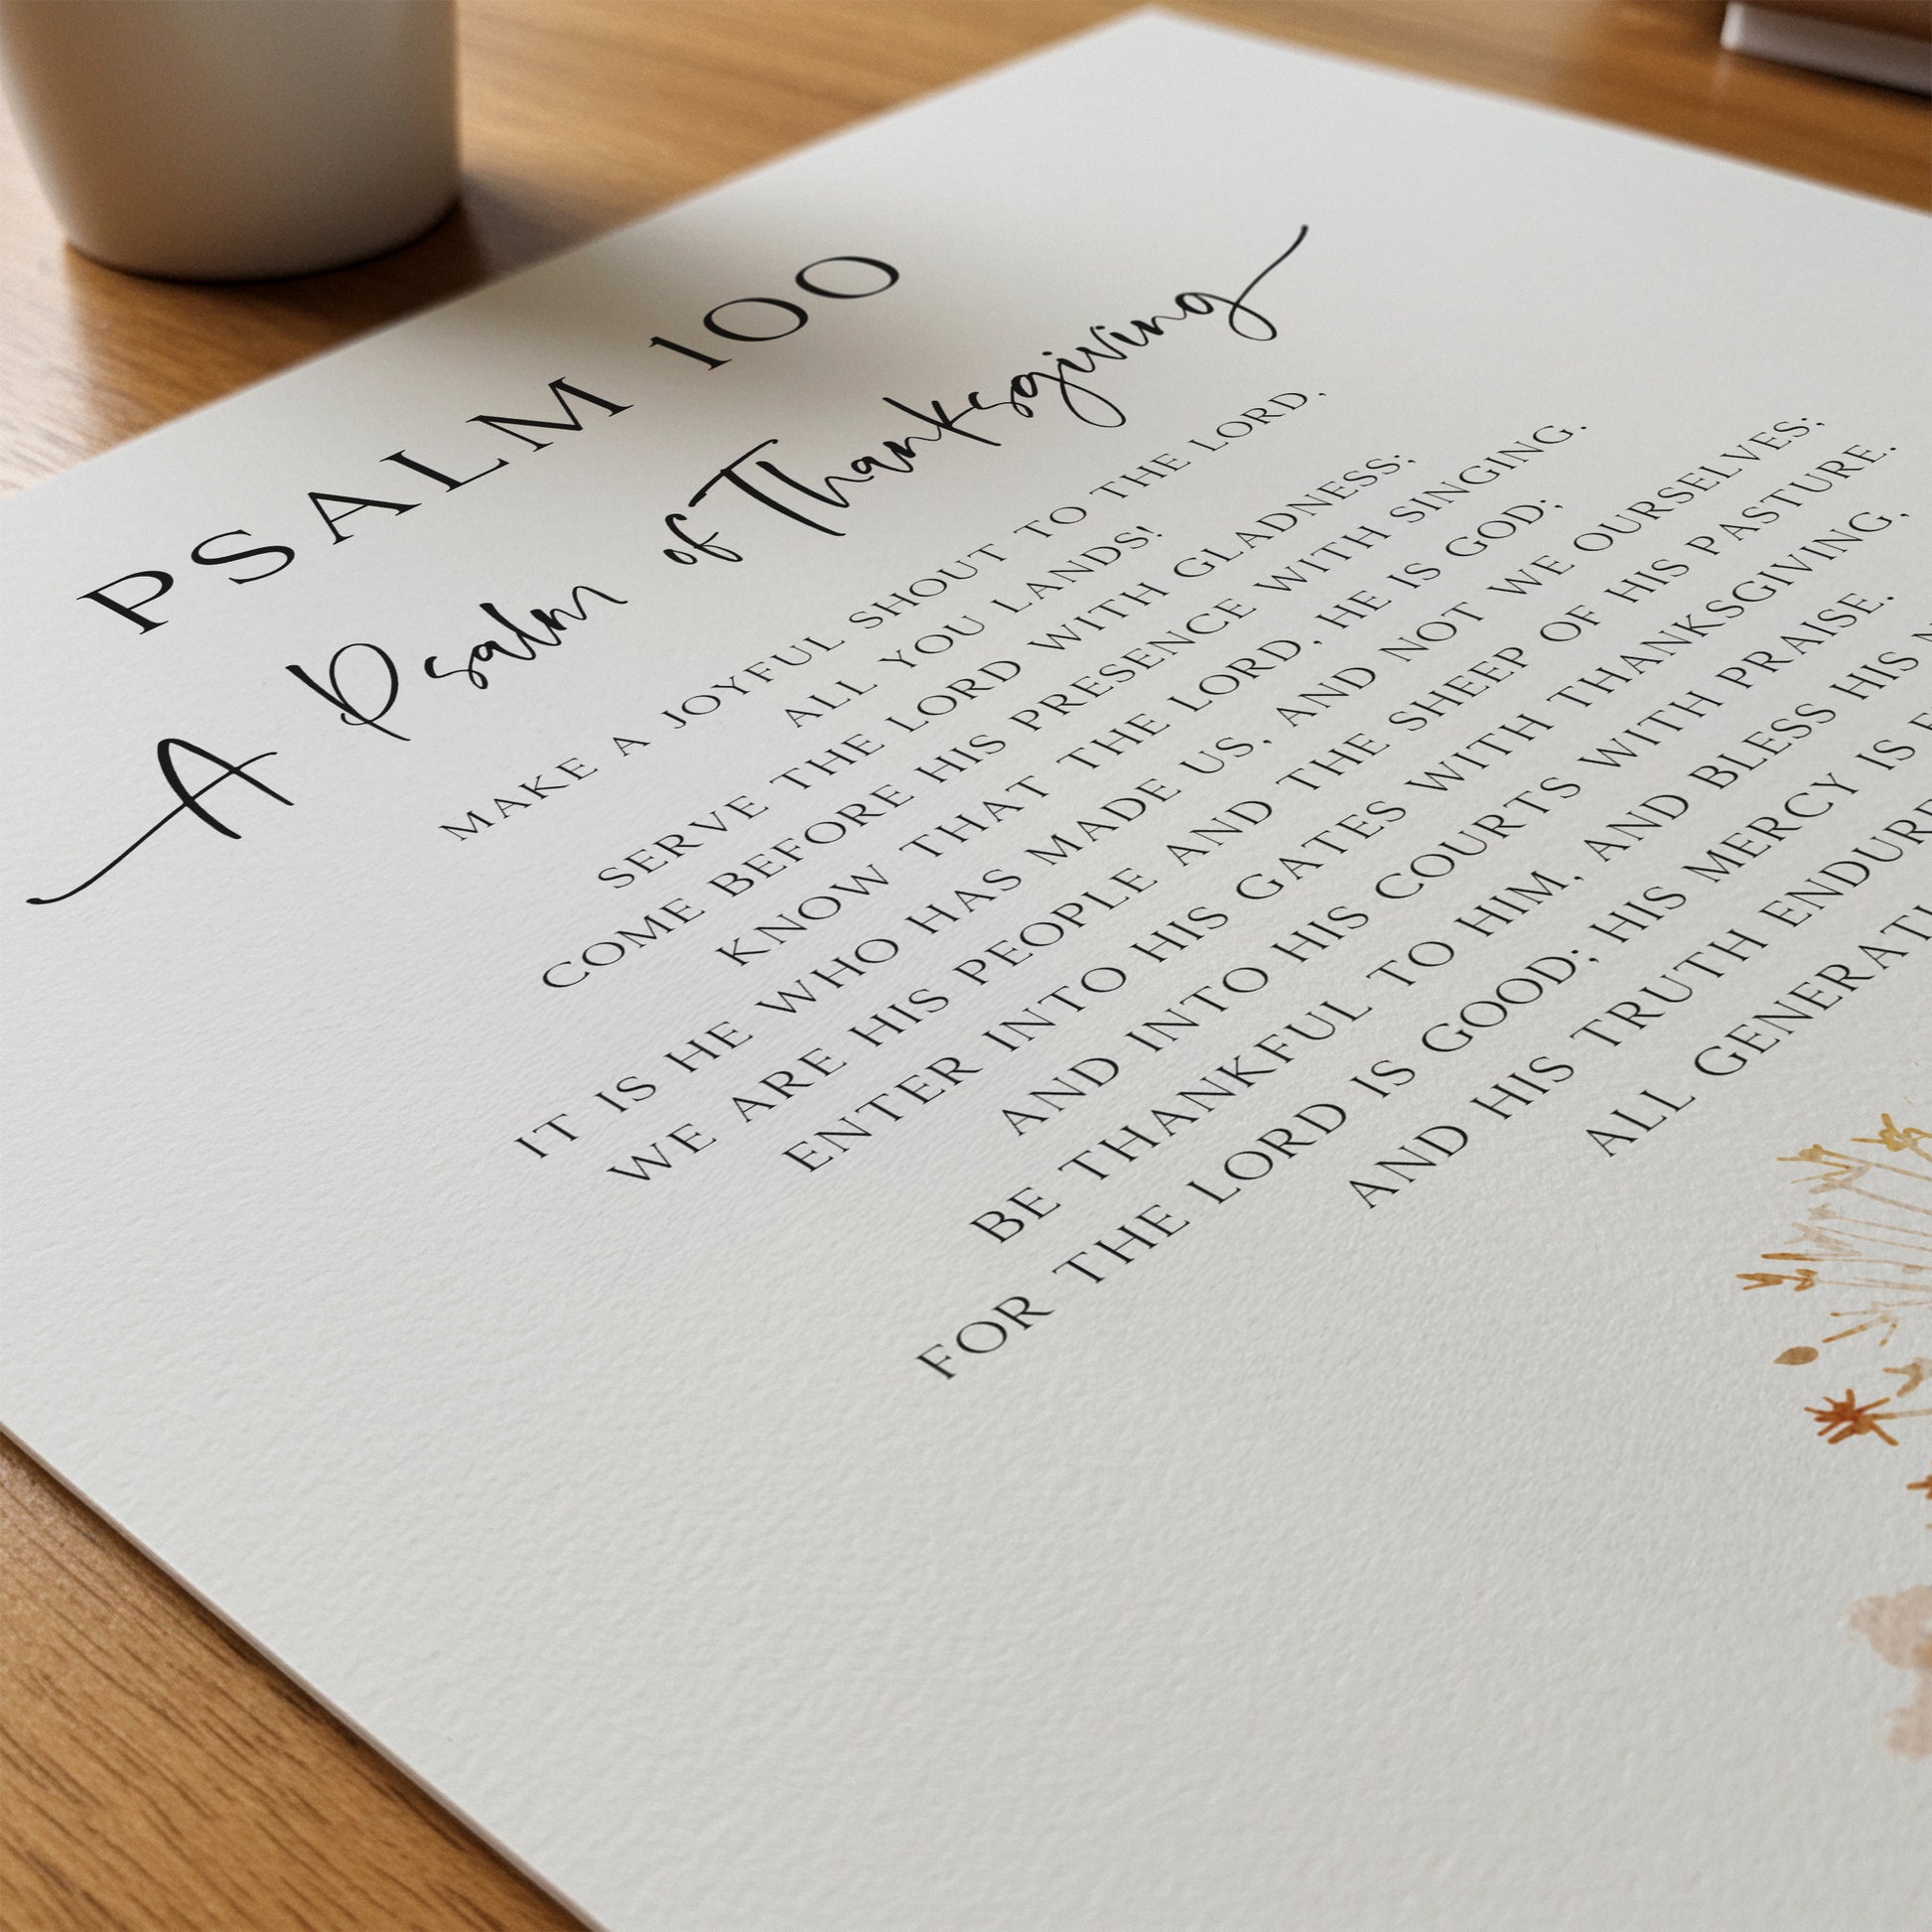 PSALM 100
A Psalm of Thanksgiving
MAKE A JOYFUL SHOUT TO THE LORD,
ALL YOU LANDS!
SERVE THE LORD WITH GLADNESS;
COME BEFORE HIS PRESENCE WITH SINGING.
KNOW THAT THE LORD, HE IS GOD;
IT IS HE WHO HAS MADE US, AND NOT WE OURSELVES;
WE ARE HIS PEOPLE AND THE SHEEP OF HIS PASTURE.
ENTER INTO HIS GATES WITH THANKSGIVING,
AND INTO HIS COURTS WITH PRAISE.
BE THANKFUL TO HIM, AND BLESS HIS
FOR THE LORD IS GOOD; HIS MERCY IS
AND HIS TRUTH
ALL